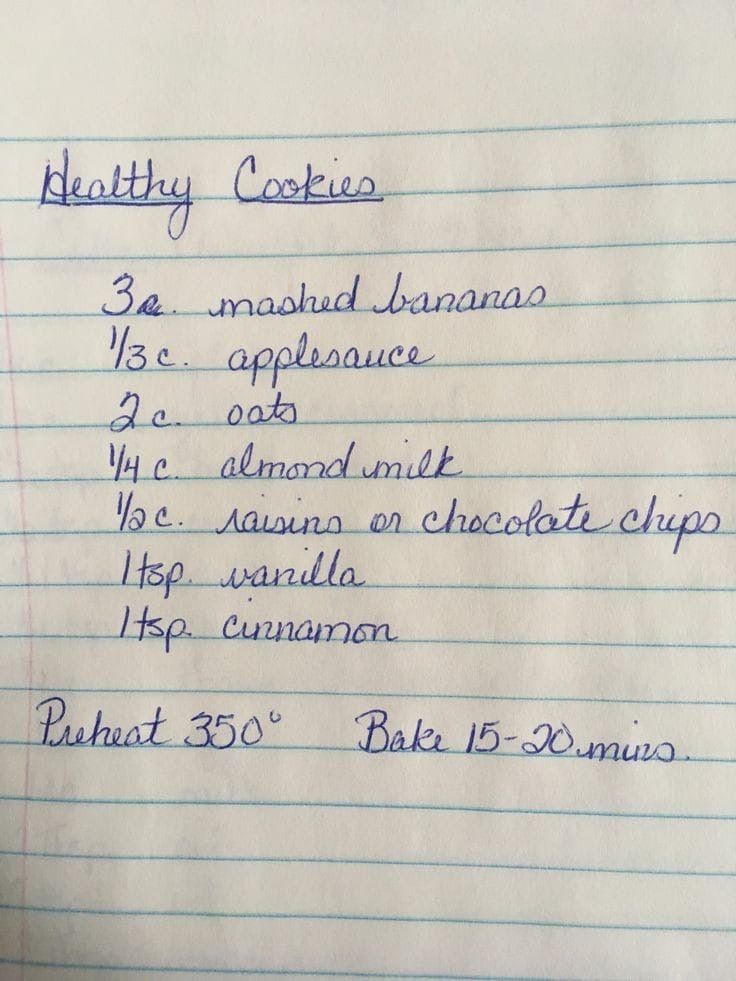 Healthy Cookies
3 mashed bananas
1/3 c. applesauce
2 c. oats
1/4 c. almond milk
1/2 c. raisins or chocolate chips
1 tsp. vanilla
1 tsp. cinnamon
Preheat 350° Bake 15-20 mins.